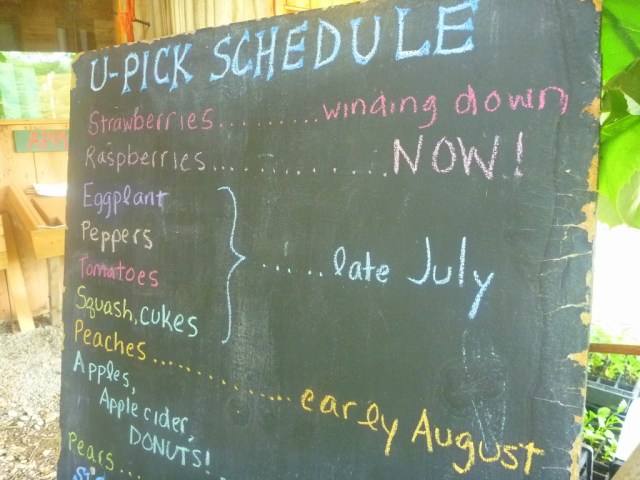 U-PICK SCHEDULE
Strawberries.........winding down
Raspberries..............NOW!
Eggplant
Peppers
Tomatoes
Squash, cukes
......late July
Peaches..............early August
Apples,
Apple cider,
DONUTS!
Pears...